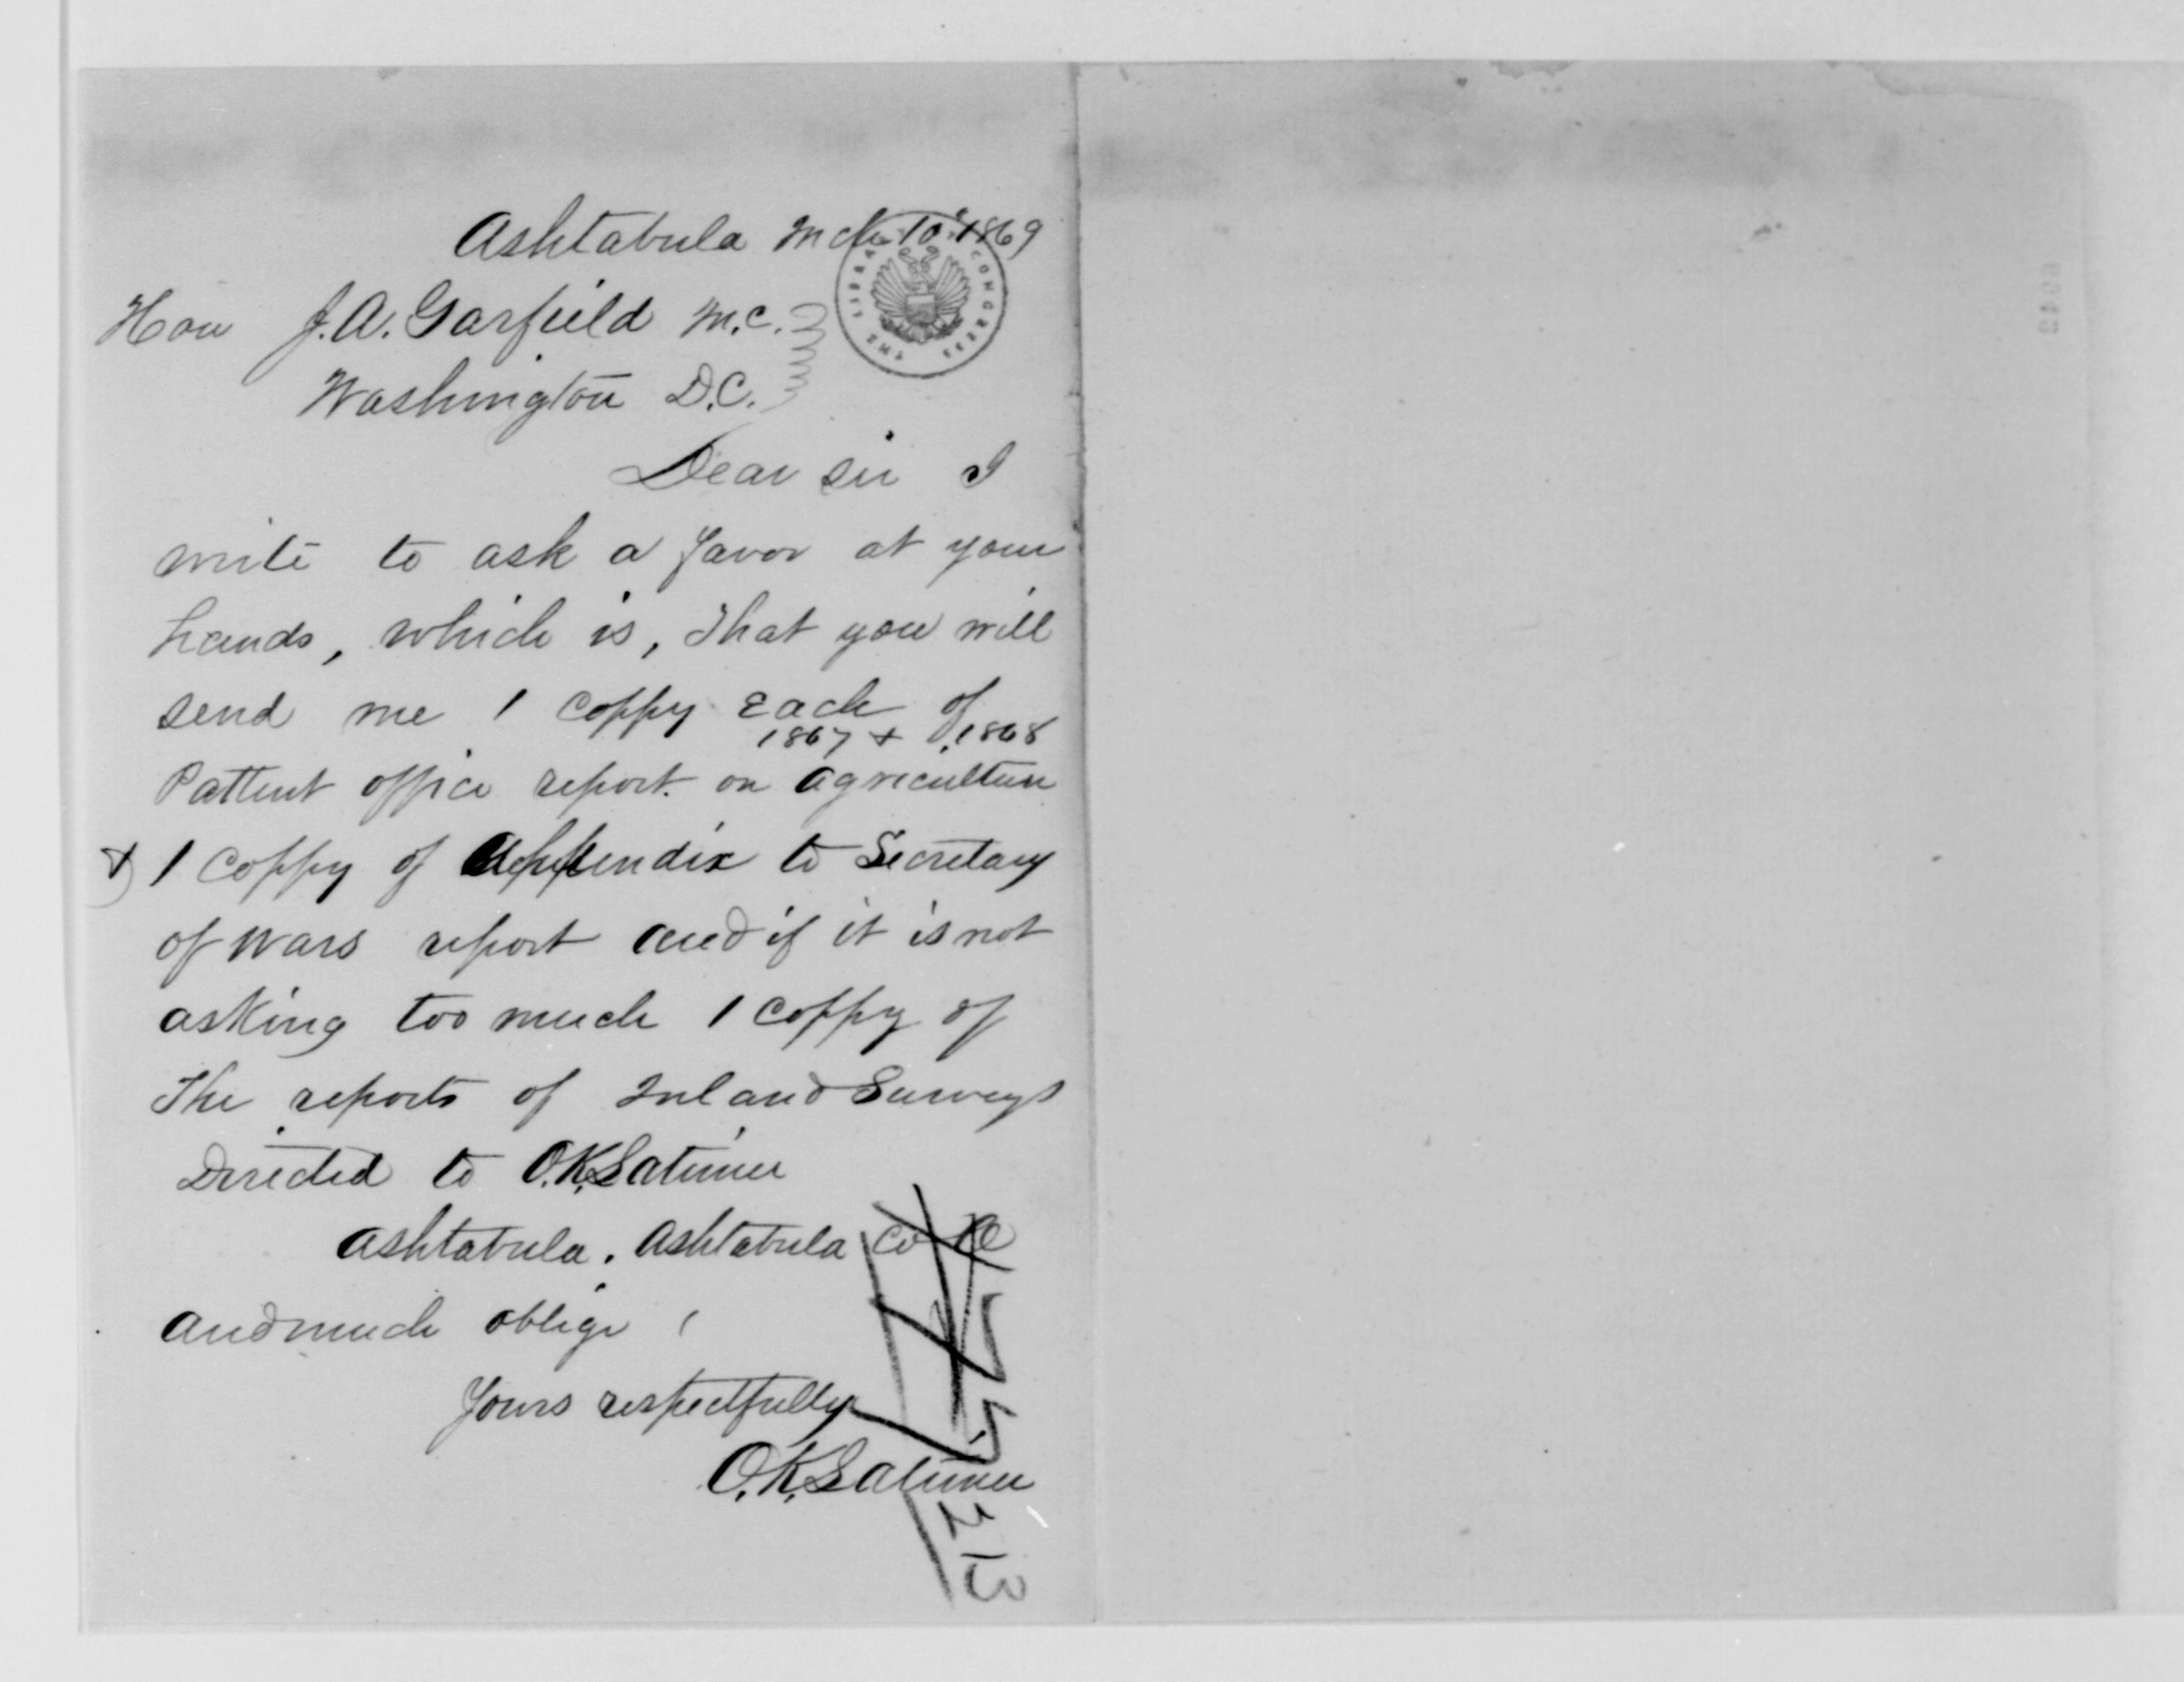 Ashtabula Mch 10" 1869
Hon J.A. Garfield M.C.
Washington D.C.
Dear Sir I
write to ask a favor at your
hands, which is, That you will
send me 1 coppy Each of
1867 + 1868
Pattent office report. on Agriculture
+ 1 coppy of Appendix to Secretary
of Wars report and if it is not
asking too much 1 coppy of
The reports of Inland Surveys
Directed to O.K. Latimer
Ashtabula. Ashtabula Co O
and much oblige
Yours respectfully
O.K. Latimer
213
THE LIBRARY OF CONGRESS